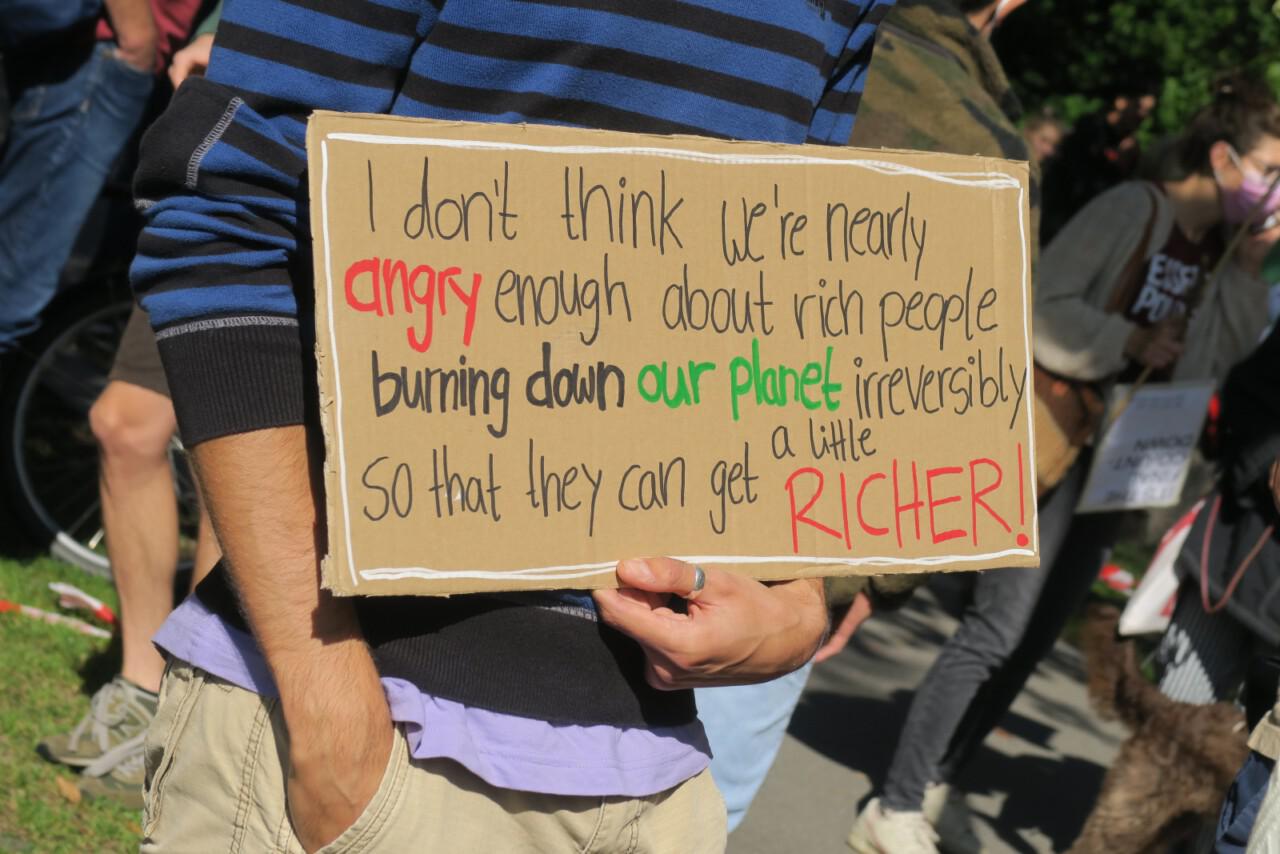 I don't think we're nearly
angry enough about rich people
burning down our planet irreversibly
so that they can get a little
RICHER!